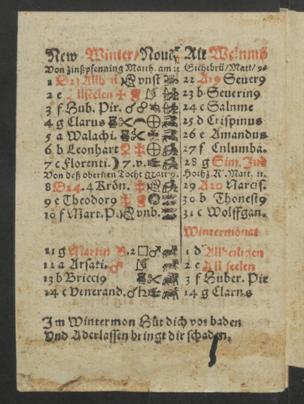 New Winter/Nove Alt Weinm
Von zinßpfenning Matth. am 22
1 D23 Allh vnst 22 A19 Severg
2 e Allseelen 23 b Severing
3 f Hub. Pir. 24 c Salnme
4 g Clarus 25 d Crispinus
5 a Walachi. 26 e Amandus
6 b Leonhart 27 f Cnlumba.
7 c Florenti. 7.v. 28 g Sim. Jud
Von deß obersten Tocht. Hochz. R. Matt. 22.
8 D24. 4 Krön. 29 A20 Narcis.
9 e Theodoro 30 b Thonest9
10 f Mart. P. vnb. 31 c Wolffgan.
Wintermonat
11 g Martin B. 2 1 d Allheiligen
12 a Arsati. 2 e All seelen
13 b Briccig 3 f Huber. Pir
14 c Venerand. 4 g Clarus
Im Wintermon Hüt dich vor baden
Vnd Aderlassen bringt dir schaden.